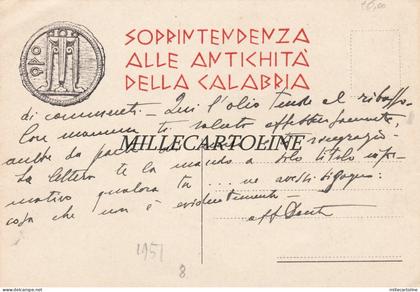 SOPRINTENDENZA
ALLE ANTICHITÀ
DELLA CALABRIA
di commenti. - Qui l'olio tende al ribasso.
Con mamma ti saluto affettuosamente,
anche da parte
MILLECARTOLINE
La lettera te la mando a solo titolo infor-
mativo qualora tu ... ne avessi bisogno:
cosa che non è evidentemente -
aff Dante
1951
8